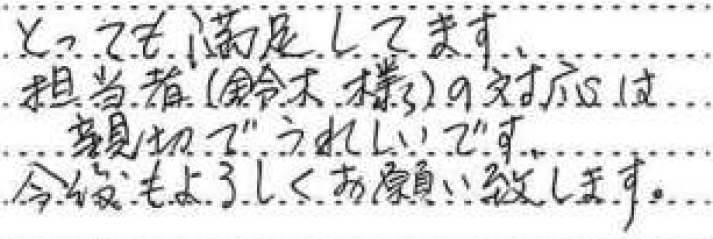 とっても満足してます、
担当者(鈴木様)の対応は
親切でうれしいです、
今後もよろしくお願い致します。